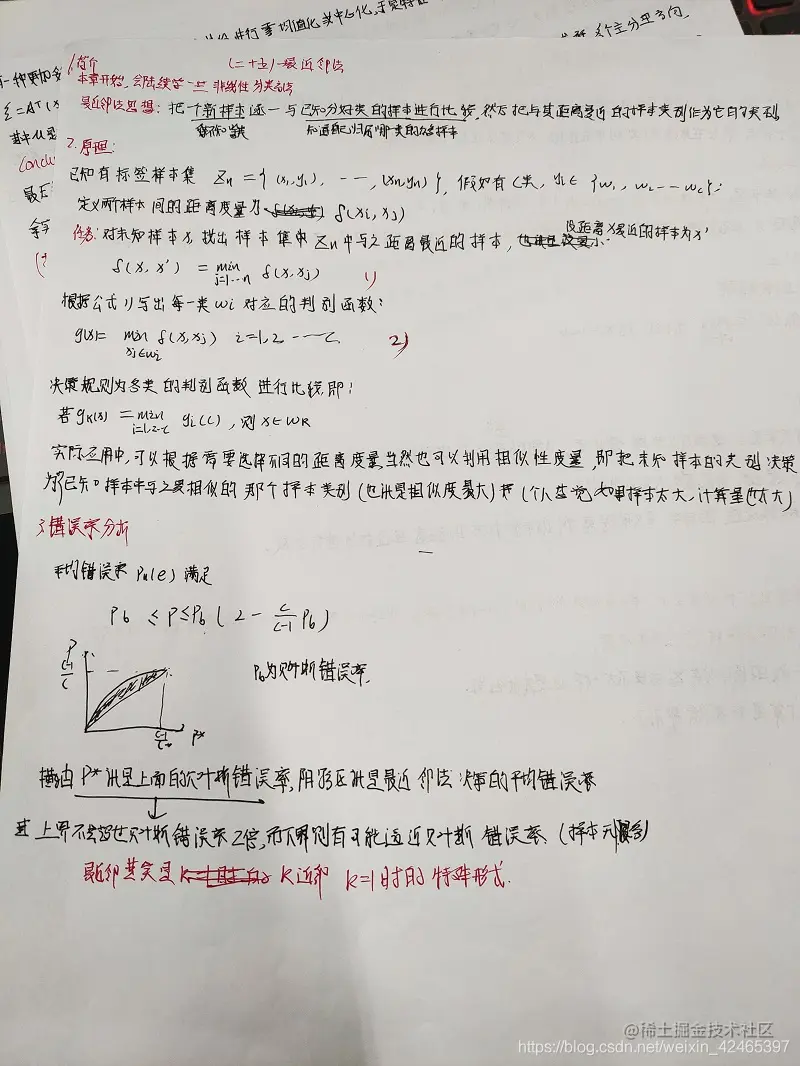 进行零均值化或中心化,
1.简介 (二十五)-最近邻法
本章开始,会陆续学一些非线性分类的方法
最近邻法思想: 把一个新样本逐一与已知分好类的样本进行比较,然后把与其距离最近的样本类别作为它的类别
知道自己归属哪类的样本
2.原理:
已知有标签样本集 Zn = { (x1,y1), --- , (xn,yn) }, 假如有C类, yi ∈ { w1, w2 --- wc };
定义两个样本间的距离度量为 δ(xi, xj)
任务: 对未知样本x,找出样本集中Zn中与之距离最近的样本, 设距离x最近的样本为x'
δ(x, x') = min δ(x, xj) 1)
j=1---n
根据公式1)写出每一类wi对应的判别函数:
g(x)= min δ(x,xj) i=1,2 ---c 2)
xj∈wi
决策规则为各类的判别函数进行比较,即:
若gk(x) = min gi(c), 则x∈wk
i=1,2--c
实际应用中,可以根据需要选择不同的距离度量,当然也可以利用相似性度量,即把未知样本的类别决策
为已知样本中与之最相似的那个样本类别(也就是相似度最大) (个人感觉如果样本太大,计算量也太大)
3.错误率分析
平均错误率 Pn(e) 满足
Pb ≤ P ≤ Pb ( 2 - c/c-1 Pb )
P
c-1/c
Pb为贝叶斯错误率,
c-1/c P*
横轴P*就是上面的贝叶斯错误率,阴影区就是最近邻法决策的平均错误率
其上界不会超过贝叶斯错误率2倍,而下界则有可能逼近贝叶斯错误率.
最近邻其实是 K近邻 k=1时的特殊形式.
@稀土掘金技术社区
https://blog.csdn.net/weixin_42465397